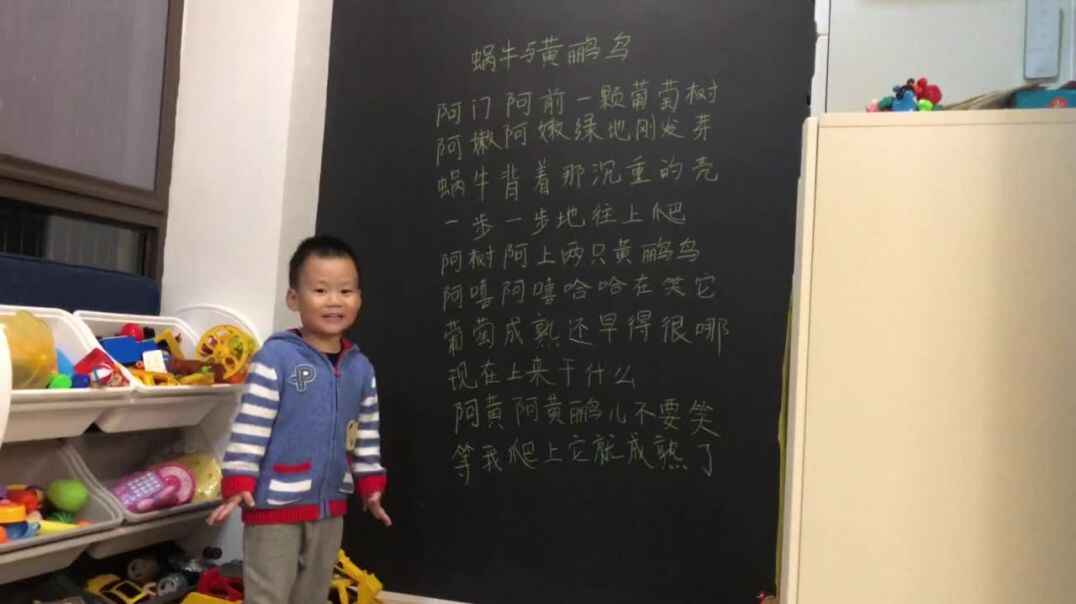 蜗牛与黄鹂鸟
阿门阿前一颗葡萄树
阿嫩阿嫩绿地刚发芽
蜗牛背着那沉重的壳
一步一步地往上爬
阿树阿上两只黄鹂鸟
阿嘻阿嘻哈哈在笑它
葡萄成熟还早得很哪
现在上来干什么
阿黄阿黄鹂儿不要笑
等我爬上它就成熟了
P